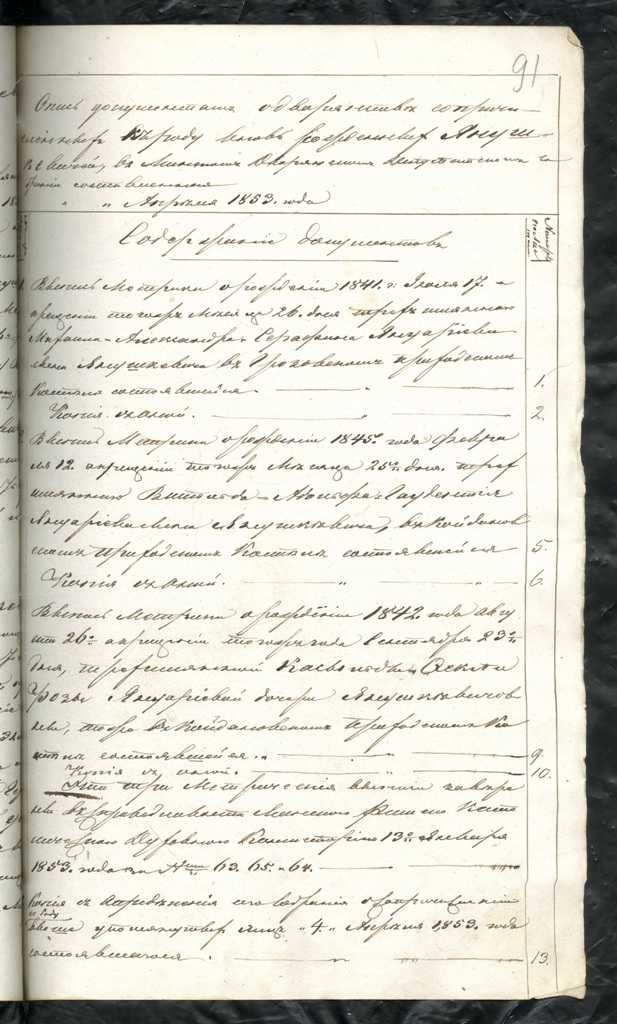 91
Опись документамъ о дворянствѣ сопричи-
сленныхъ къ роду вновь рожденныхъ Януш-
кевичей, въ Минскомъ Дворянскомъ Депутатскомъ Со-
браніи составленная
" " Апрѣля 1853. года
Содержаніе документовъ
Выпись Метрики о рожденіи 1841. г. Іюля 17. а
крещеніи тогожъ Мѣсяца 26. дня
Михаила-Александра-Серафина Януаріева
сына Янушкевича въ Грозовскомъ приходскомъ
Костелѣ состоявшейся. 1.
Копія съ оной. 2.
Выпись Метрики о рожденіи 1845го года Февра
ля 12. а крещеніи тогожъ Мѣсяца 25го дня
Витольда - Гаудентія
Януаріева сына Янушкевича, въ Койданов
скомъ приходскомъ Костелѣ состоявшейся 5.
Копія съ оной. 6.
Выпись Метрики о рожденіи 1842 года Авгу
ста 26го а крещеніи тогожъ года Сентября 23го
дня,
Розы Януаріевой дочери Янушкевичов
ны, тоже въ Койдановскомъ приходскомъ Ко
стелѣ состоявшейся. 9.
Копія съ оной. 10.
Эти три Метрическія выписи завѣре
ны въ справедливости Минскою Римско Като
лическою Духовною Консисторіею 13го Января
1853. года за №ми 63. 65. и 64.
Копія съ опредѣленія сего собранія о сопричисленіи
къ роду
упомянутыхъ лицъ "4" Апрѣля 1853. года
состоявшагося. 13.